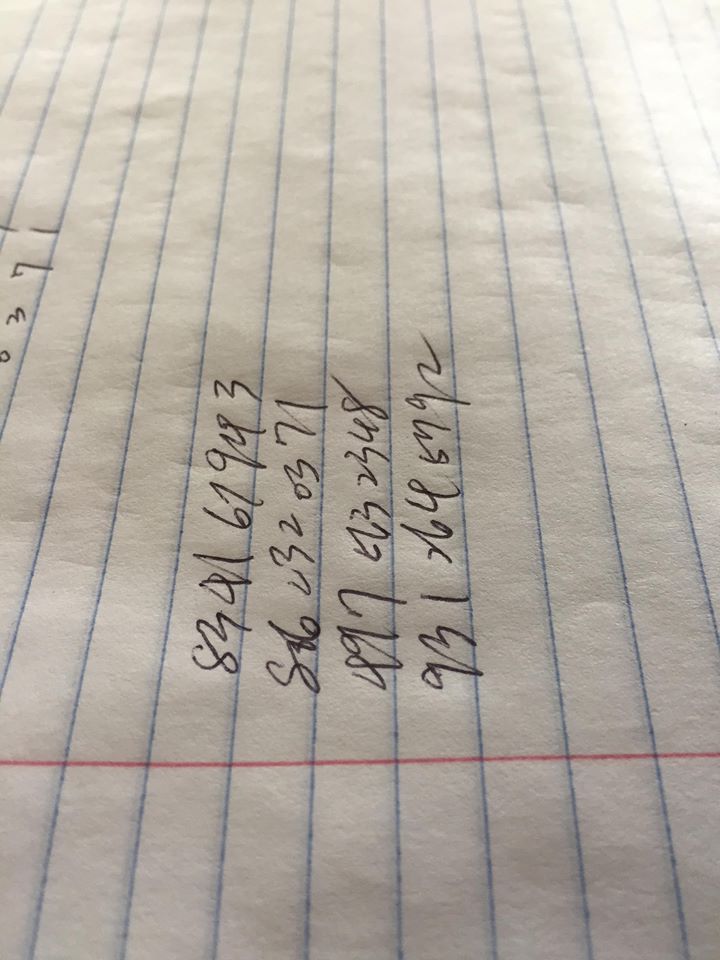 0 3 7 1
8341 67943
806 232 0371
497 563 2348
931 264 5792